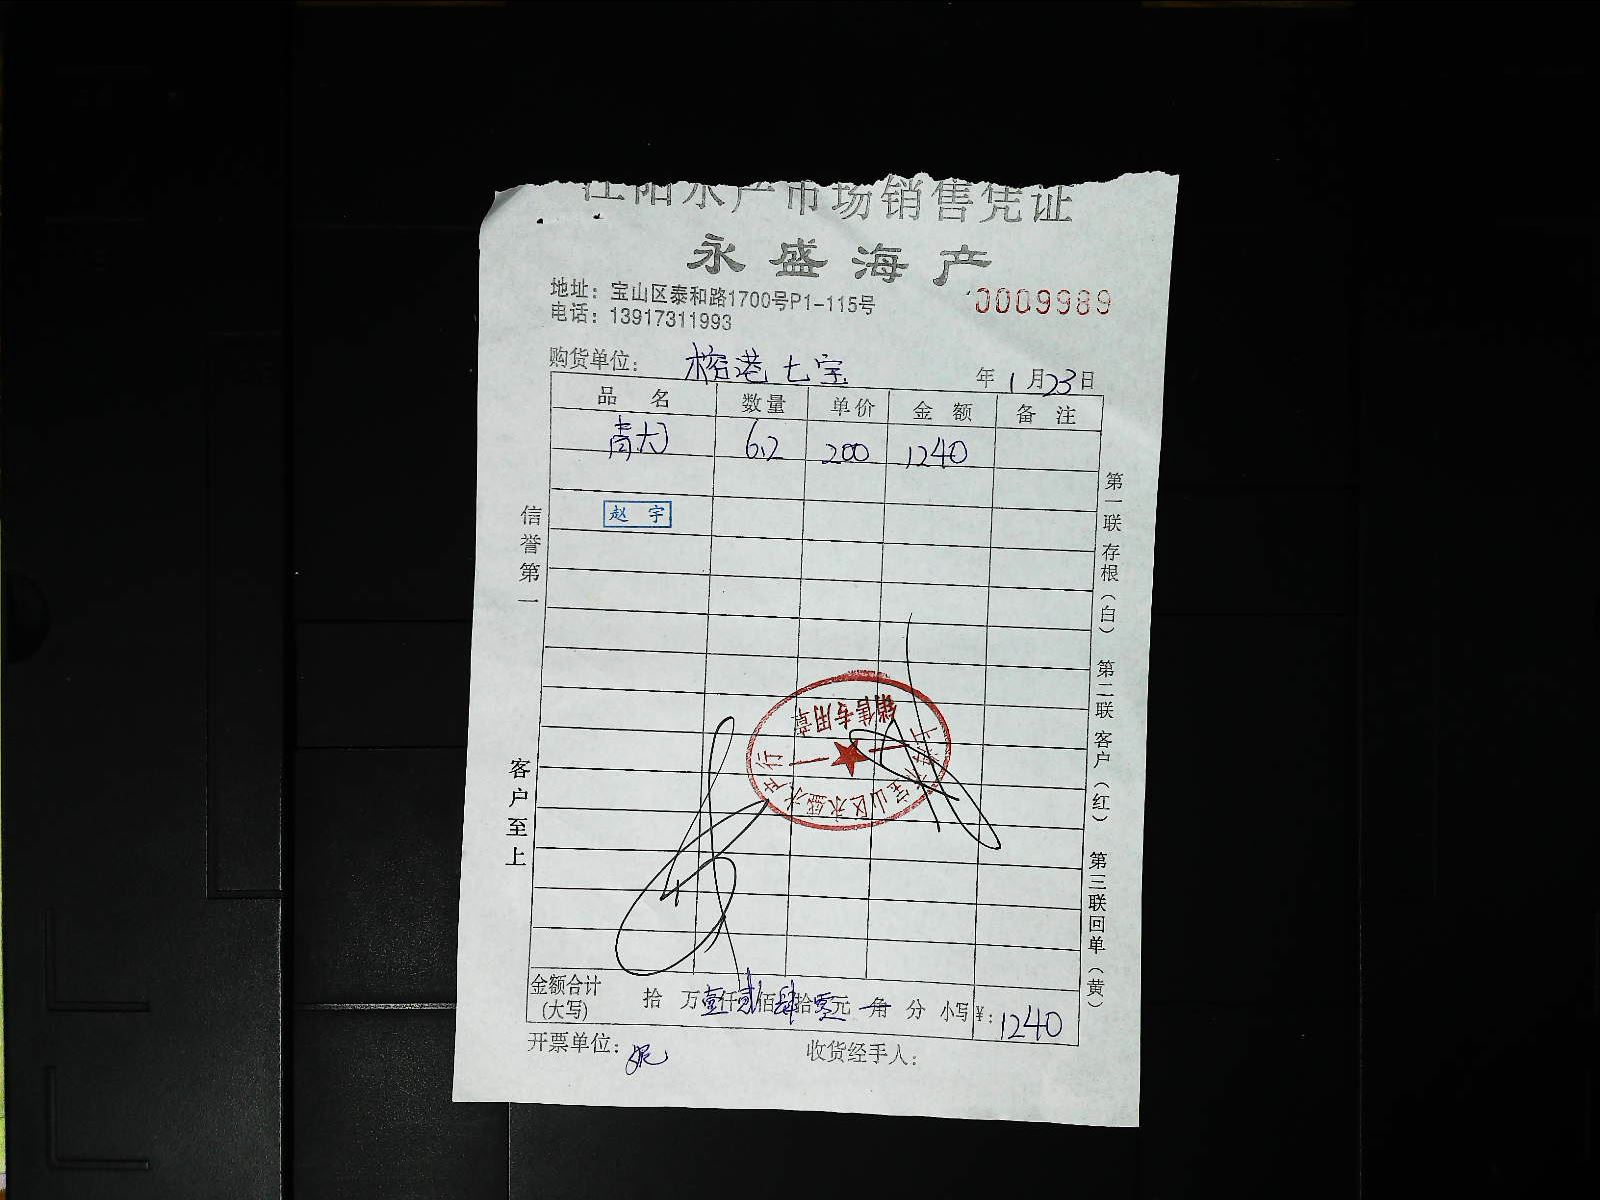 江阳水产市场销售凭证
永盛海产
地址：宝山区泰和路1700号P1-115号
电话：13917311993
0009989
购货单位：榕港七宝 年1月23日
品名 数量 单价 金额 备注
青 6.2 200 1240
赵宇
信誉第一
客户至上
第一联存根（白） 第二联客户（红） 第三联回单（黄）
销售专用章
上海市宝山区永盛水产行
金额合计（大写） 拾 万壹仟贰佰肆拾零元 角 分 小写¥：1240
开票单位： 收货经手人：